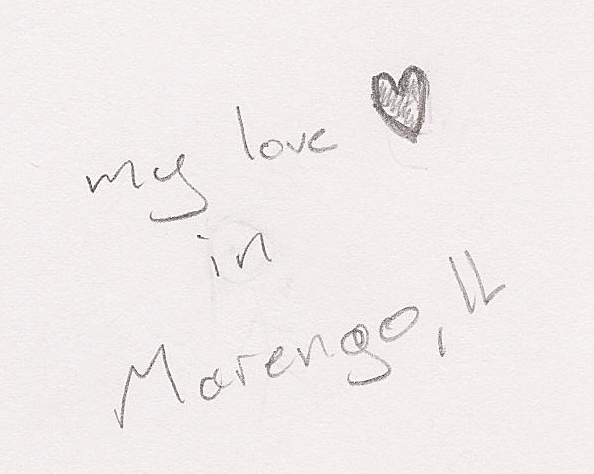 my love ♥
in
Marengo, IL